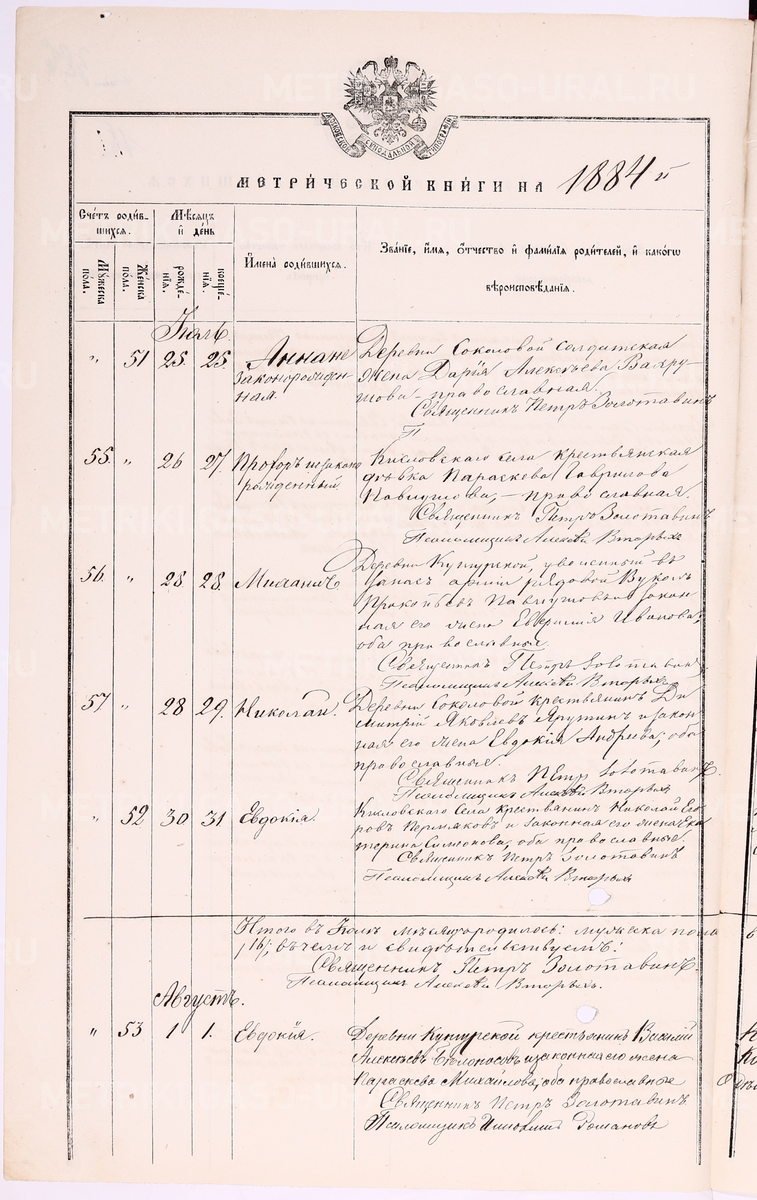 МОСКОВСКОЙ СѴНОДАЛЬНОЙ ТИПОГРАФІИ
МЕТРИ́ЧЕСКОЙ КНИ́ГИ НА 1884 й
Сче́тъ роди́в-
шихся.
Мѣ́сяцъ
и де́нь
Имена̀ роди́вшихся.
Зва́ніе, и́мя, о́тчество и фами́лія роди́телей, и како́гѡ
вѣроисповѣ́данія.
Мꙋ́жеска
по́ла.
Же́нска
по́ла.
рожде́-
нія.
креще́-
нія.
Іюль.
" 51 25. 25. Анна не
законорожден-
ная.
Деревни Соколовой солдатская
жена Дарія Алексѣева Вахру-
шова – православная.
Священникъ Петръ Золотавинъ
П
55. " 26 27. Прохоръ незаконо
рожденный
Кисловскаго села крестьянская
дѣвка Параскева Гаврилова
Павлушова, – православная.
Священникъ Петръ Золотавинъ
Псаломщикъ Алексѣй Вторыхъ
56. " 28. 28.
Деревни Кунгурской, уволенный въ
запасъ арміи рядовой Вуколъ
Прокопьевъ и закон-
ная его жена Иванова;
оба православные.
Священникъ Петръ Золотавинъ
Псаломщикъ Алексѣй Вторыхъ
57. " 28 29. Николай.
Деревни Соколовой крестьянинъ Ди
митрій Яковлевъ Ярутинъ и закон
ная его жена Евдокія Андреева; оба
православные.
Священникъ Петръ Золотавинъ.
Псаломщикъ Алексѣй Вторыхъ
" 52. 30 31. Евдокія.
Кисловскаго Села крестьянинъ Николай Его
ровъ Пермяковъ и законная его жена Ека
терина Симонова, оба православные.
Священникъ Петръ Золотавинъ
Псаломщикъ Алексѣй Вторыхъ
Итого въ Іюлѣ мѣсяцѣ родилось: мужеска пола
16; въ чемъ и свидѣтельствуемъ:
Священникъ Петръ Золотавинъ.
Псаломщикъ Алексѣй Вторыхъ.
Августъ.
" 53 1 1. Евдокія.
Деревни Кунгурской крестьянинъ Василій
Алексѣевъ Бѣлоносовъ и законная его жена
Параскева Михайлова, оба православные
Священникъ Петръ Золотавинъ
Псаломщикъ Домановъ